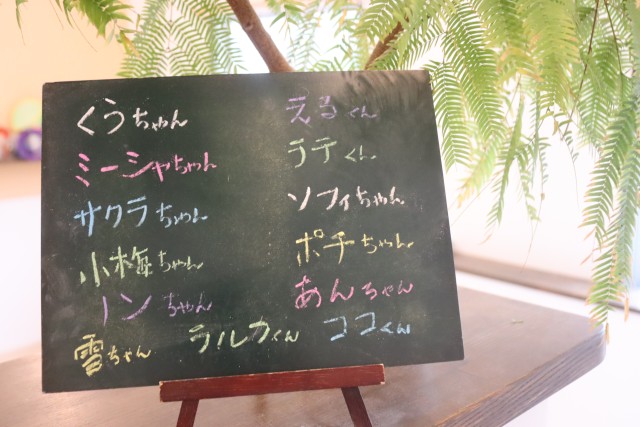 くうちゃん
ミーシャちゃん
サクラちゃん
小梅ちゃん
ノンちゃん
雪ちゃん
えるくん
ラテくん
ソフィちゃん
ポチちゃん
あんちゃん
ラルカくん
ココくん